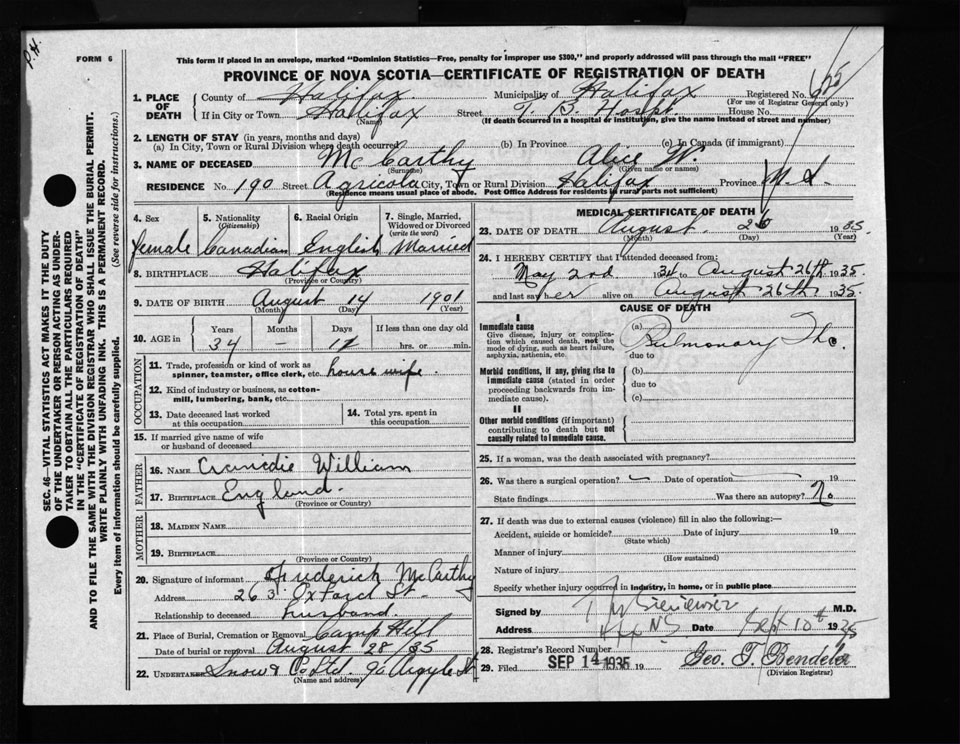 P.H.
FORM 6
This form if placed in an envelope, marked "Dominion Statistics—Free, penalty for improper use $300," and properly addressed will pass through the mail "FREE"
PROVINCE OF NOVA SCOTIA—CERTIFICATE OF REGISTRATION OF DEATH
1. PLACE OF DEATH County of Halifax Municipality of Halifax Registered No.
(For use of Registrar General only)
If in City or Town Halifax Street T. B. Hospt. House No.
(Name) (If death occurred in a hospital or institution, give the name instead of street and number)
2. LENGTH OF STAY (in years, months and days)
(a) In City, Town or Rural Division where death occurred (b) In Province (c) In Canada (if immigrant)
3. NAME OF DECEASED McCarthy Alice W.
(Surname) (Given name or names)
RESIDENCE No. 190 Street Agricola City, Town or Rural Division Halifax Province N.S.
(Residence means usual place of abode. Post Office Address for residents in rural parts not sufficient)
4. Sex 5. Nationality (Citizenship) 6. Racial Origin 7. Single, Married, Widowed or Divorced (write the word)
female Canadian English Married
8. BIRTHPLACE Halifax
(Province or Country)
9. DATE OF BIRTH August 14 1901
(Month) (Day) (Year)
10. AGE in Years Months Days If less than one day old
34 — 12 hrs. or min.
OCCUPATION
11. Trade, profession or kind of work as spinner, teamster, office clerk, etc. house wife.
12. Kind of industry or business, as cotton-mill, lumbering, bank, etc.
13. Date deceased last worked at this occupation 14. Total yrs. spent in this occupation
15. If married give name of wife or husband of deceased
FATHER
16. NAME William
17. BIRTHPLACE England.
(Province or Country)
MOTHER
18. MAIDEN NAME
19. BIRTHPLACE
(Province or Country)
20. Signature of informant Frederick McCarthy
Address 263 Oxford St.
Relationship to deceased husband.
21. Place of Burial, Cremation or Removal Camp Hill
Date of burial or removal August 28/35
22. UNDERTAKER Snow & Co Ltd. 90 Argyle St
(Name and address)
MEDICAL CERTIFICATE OF DEATH
23. DATE OF DEATH August 26 1935.
(Month) (Day) (Year)
24. I HEREBY CERTIFY that I attended deceased from:
May 2nd 1934 to August 26th 1935.
and last saw her alive on August 26th 1935.
CAUSE OF DEATH
I
Immediate cause
Give disease, injury or complication which caused death, not the mode of dying, such as heart failure, asphyxia, asthenia, etc.
(a) Pulmonary Tbc.
due to
Morbid conditions, if any, giving rise to immediate cause (stated in order proceeding backwards from immediate cause).
(b)
due to
(c)
II
Other morbid conditions (if important) contributing to death but not causally related to immediate cause.
25. If a woman, was the death associated with pregnancy?
26. Was there a surgical operation? — Date of operation — 19
State findings Was there an autopsy? No
27. If death was due to external causes (violence) fill in also the following:—
Accident, suicide or homicide? Date of injury 19
(State which)
Manner of injury
(How sustained)
Nature of injury
Specify whether injury occurred in industry, in home, or in public place
Signed by M.D.
Address Hfx NS Date Sept 10th 1935
28. Registrar's Record Number
29. Filed SEP 14 1935 19 Geo. T. Bendeler
(Division Registrar)
SEC. 46—VITAL STATISTICS ACT MAKES IT THE DUTY
OF THE UNDERTAKER OR PERSON ACTING AS UNDER-
TAKER TO OBTAIN ALL THE PARTICULARS REQUIRED
IN THE "CERTIFICATE OF REGISTRATION OF DEATH"
AND TO FILE THE SAME WITH THE DIVISION REGISTRAR WHO SHALL ISSUE THE BURIAL PERMIT.
WRITE PLAINLY WITH UNFADING INK. THIS IS A PERMANENT RECORD.
Every item of information should be carefully supplied. (See reverse side for instructions.)